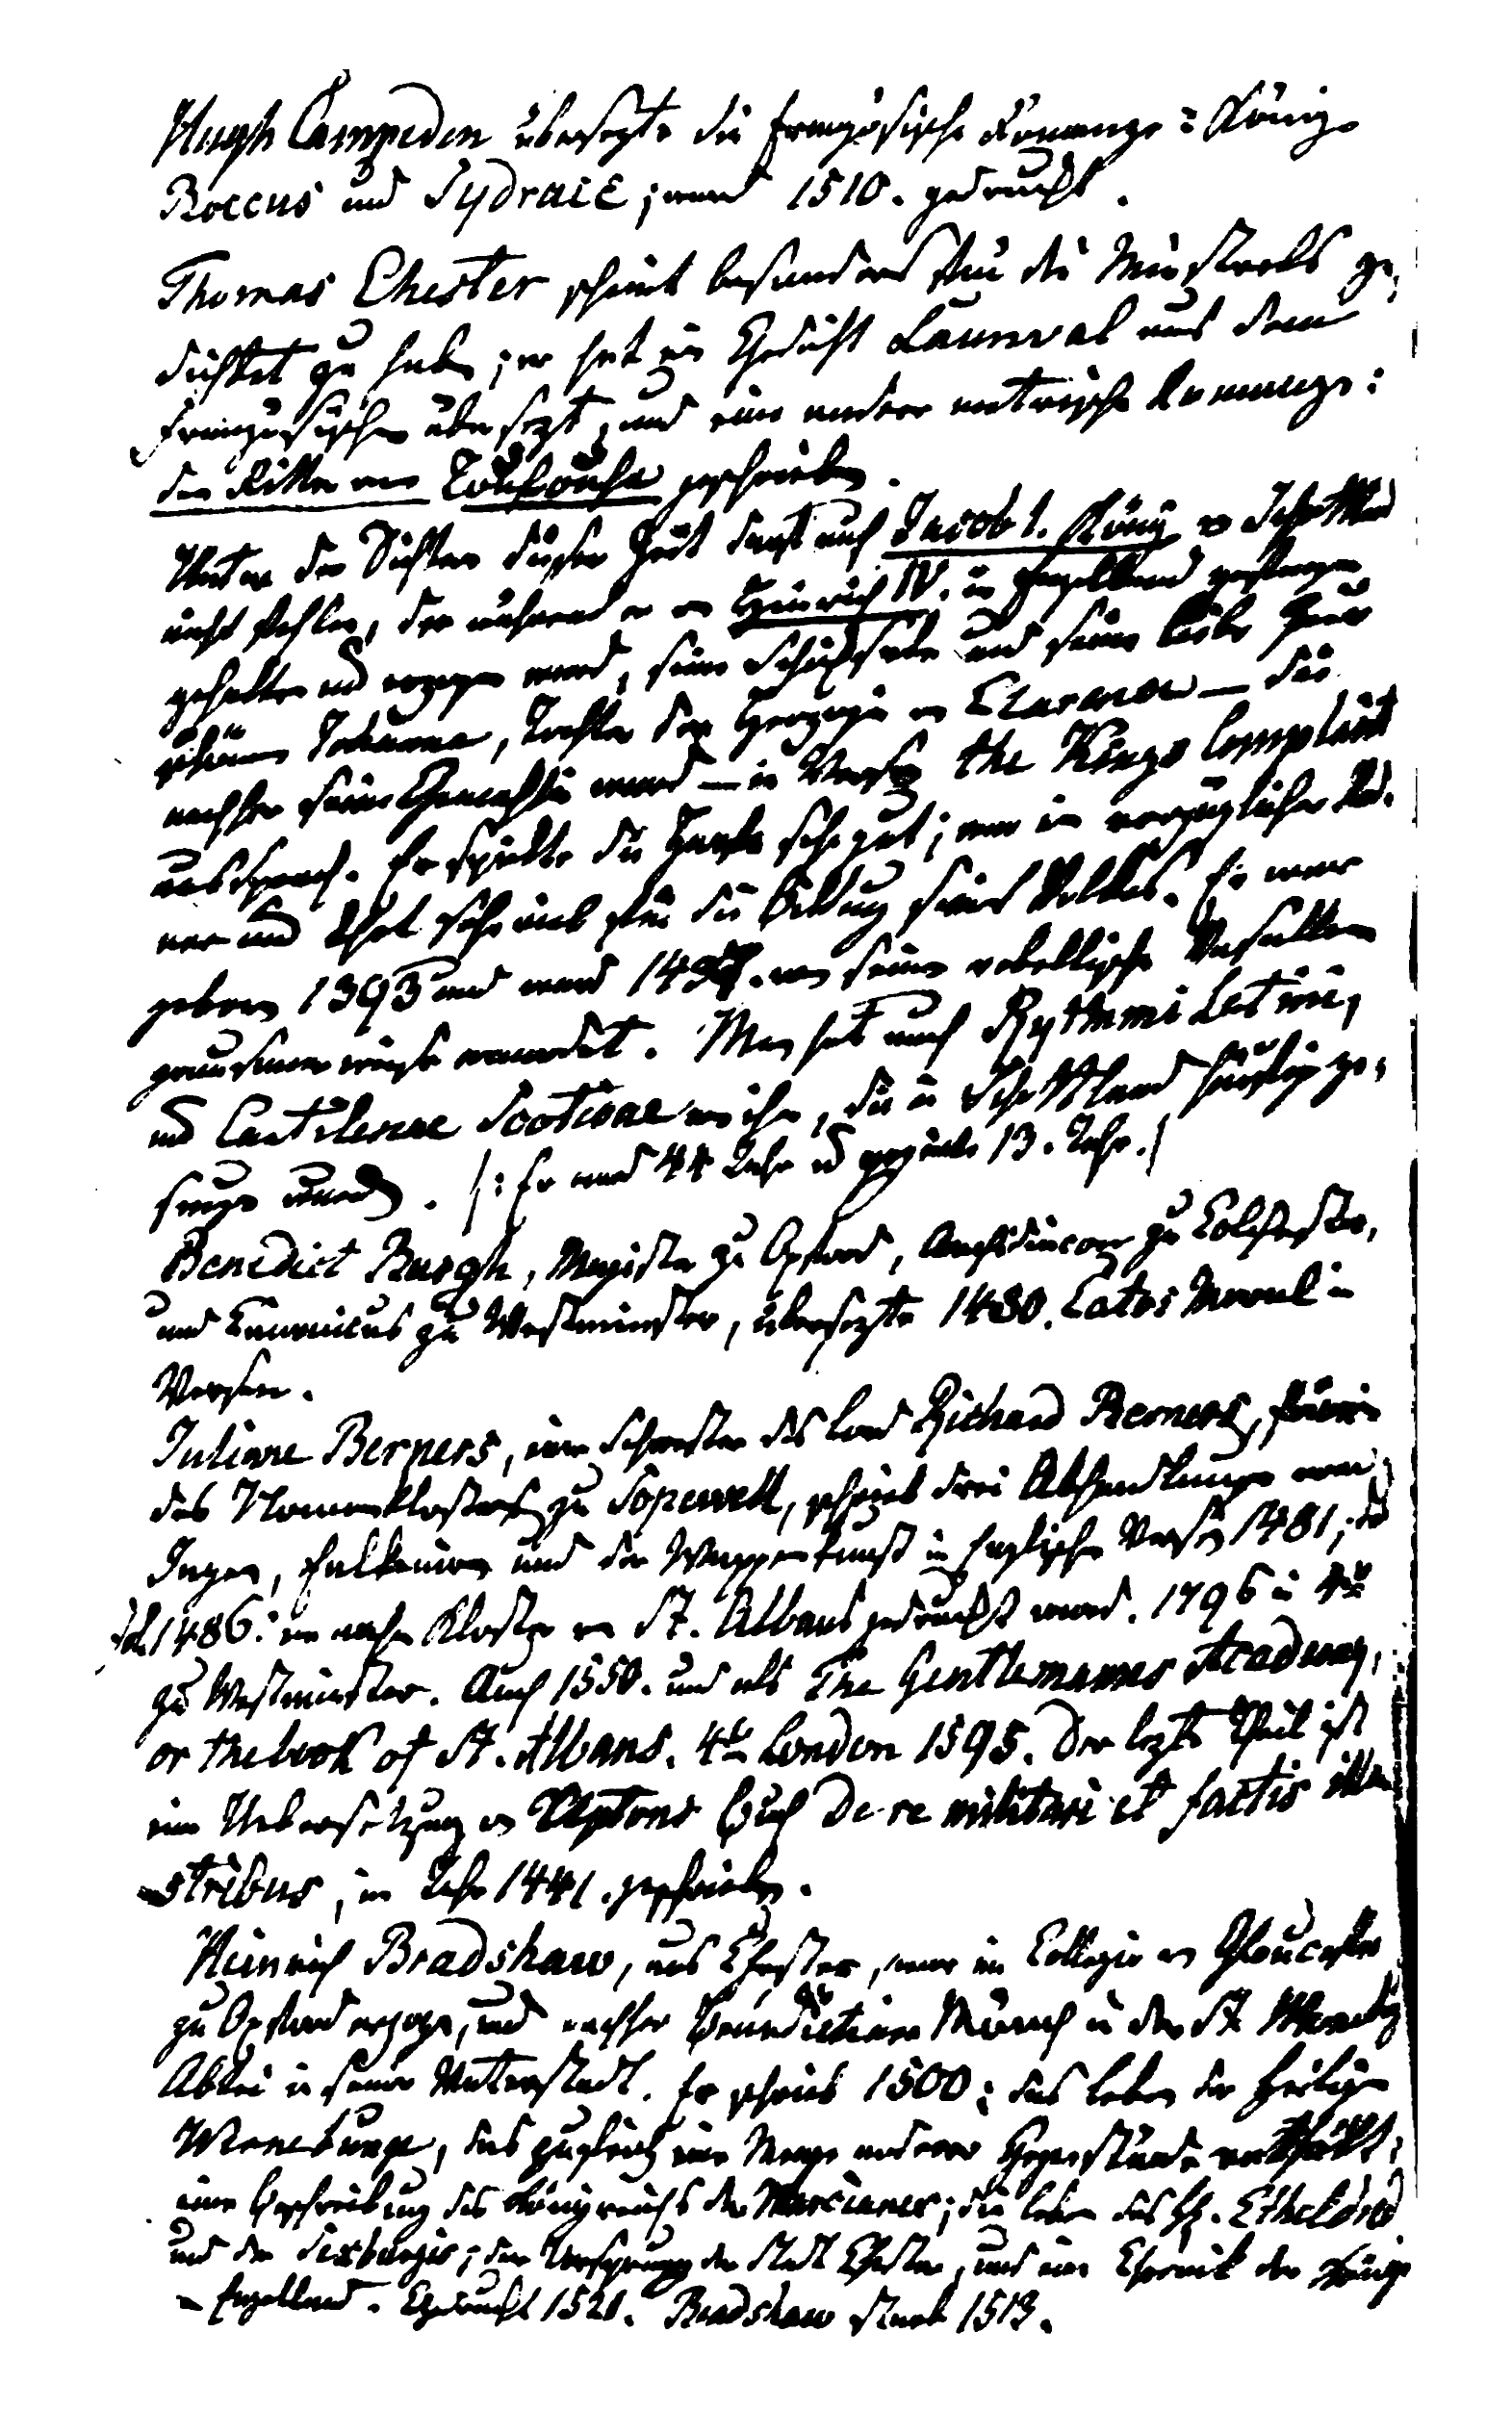 Hugh Campeden übersezte die französische Romanze: König
Boccus und Sydraie; ward 1510. gedruckt.
Thomas Chester scheint besonders für die Minstrels ge,
dichtet zu haben; er hat ein Gedicht Launval aus dem
französischen übersezt, und eine andere metrische Romanze:
den Ritter von geschrieben.
Unter den Dichtern dieser Zeit darf auch Jacob I. König v Schottland
nicht fehlen, der während er von Heinrich IV. in Engelland gefangen
gehalten und erzogen ward, seine Schicksale und seine Liebe zur
schönen Johanna, Tochter der Herzogin von Clarence — die
nachher seine Gemahlin ward — in Versen the Kings Complaint
aussprach. Er spielte die Harfe sehr gut; war ein vorzüglicher Red.
ner und that sehr viel für die Bildung seines Volkes. Er war
geboren 1393 und ward 1437. von seinen rebellischen Vasallen
grausamer weise ermordet. Man hat auch Rythmi Latini,
und Cantilenae Scoticae von ihm, die in Schottland häufig ge,
sungen wurden. /: Er ward 44 Jahr und regierte 13. Jahr./
Benedict Burgh, Magister zu Oxford, Archidiacon zu Colchester,
und Canonicus zu Westminster, übersezte 1480. Catos Moral in
Versen.
Juliane Berners, eine Schwester des Lord Richard Berners, Priorin
des Nonnenklosters zu Sopewell, schrieb drei Abhandlungen von
Jagen, Falkniren und der Wappenkunst in Englischen Versen 1481; die
1486. im nahen Kloster von St. Albans gedruckt ward. 1496 in
zu Westminster. Auch 1550. und als The Gentlemans Academy,
or the book of St. Albans. 4to London 1595. Der lezte Theil ist
eine Uebersetzung von Uptons Buch De re militari et factis illu
-stribus, im Jahr 1441. geschrieben.
Heinrich Bradshaw, aus Chester, war im Collegio von Gloucester
zu Oxford erzogen, und nachher Benedictiner Mönch in der St. Werburg
Abtei in seiner Vaterstadt. Er schrieb 1500: das Leben der heiligen
Wereburge, das zugleich eine Menge anderer Gegenstände enthält,
eine Beschreibung des Königreichs der Mercianer; die Leben der h. Etheldred
und der Sexburgis; den Ursprung der Stadt Chester, und eine Chronik der Könige
v Engelland. Gedruckt 1521. Bradshaw starb 1513.